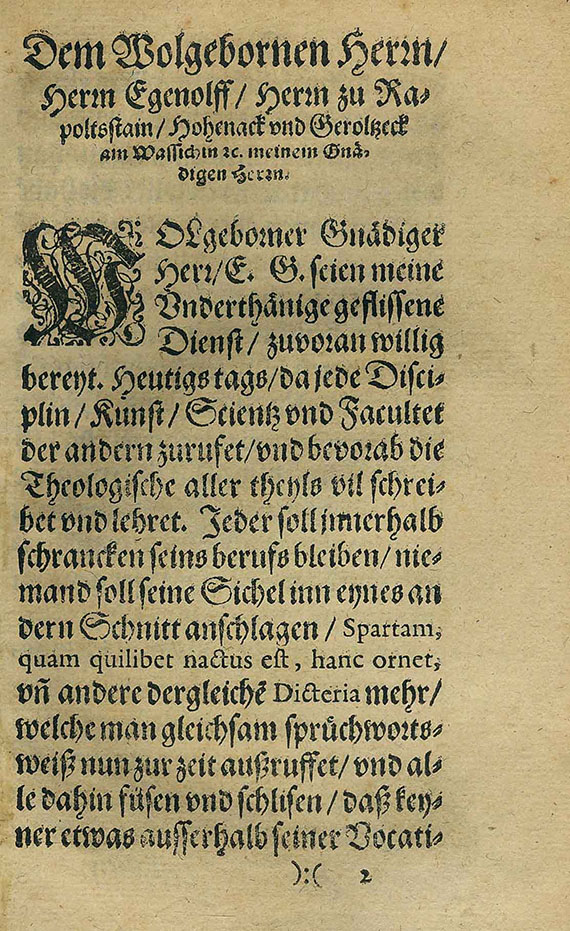 Dem Wolgebornen Herrn/
Herrn Egenolff/ Herrn zu Ra-
poltsstain/ Hohenack vnd Geroltzeck
am Wassichin ꝛc. meinem Gnä-
digen Herrn.
WOLgeborner Gnädiger
Herr/E. G. seien meine
Vnderthänige geflissene
Dienst/ zuvoran willig
bereyt. Heutigs tags/da jede Disci-
plin/ Kunst/ Scientz vnd Facultet
der andern zurufet/vnd bevorab die
Theologische aller theyls vil schrei-
bet vnd lehret. Jeder soll jnnerhalb
schrancken seins berufs bleiben/ nie-
mand soll seine Sichel inn eynes an
dern Schnitt anschlagen / Spartam,
quam quilibet nactus est, hanc ornet,
vñ andere dergleichẽ Dicteria mehr/
welche man gleichsam sprüchworts-
weiß nun zur zeit außruffet/ vnd al-
le dahin füsen vnd schlisen / daß key-
ner etwas ausserhalb seiner Vocati-
):( 2